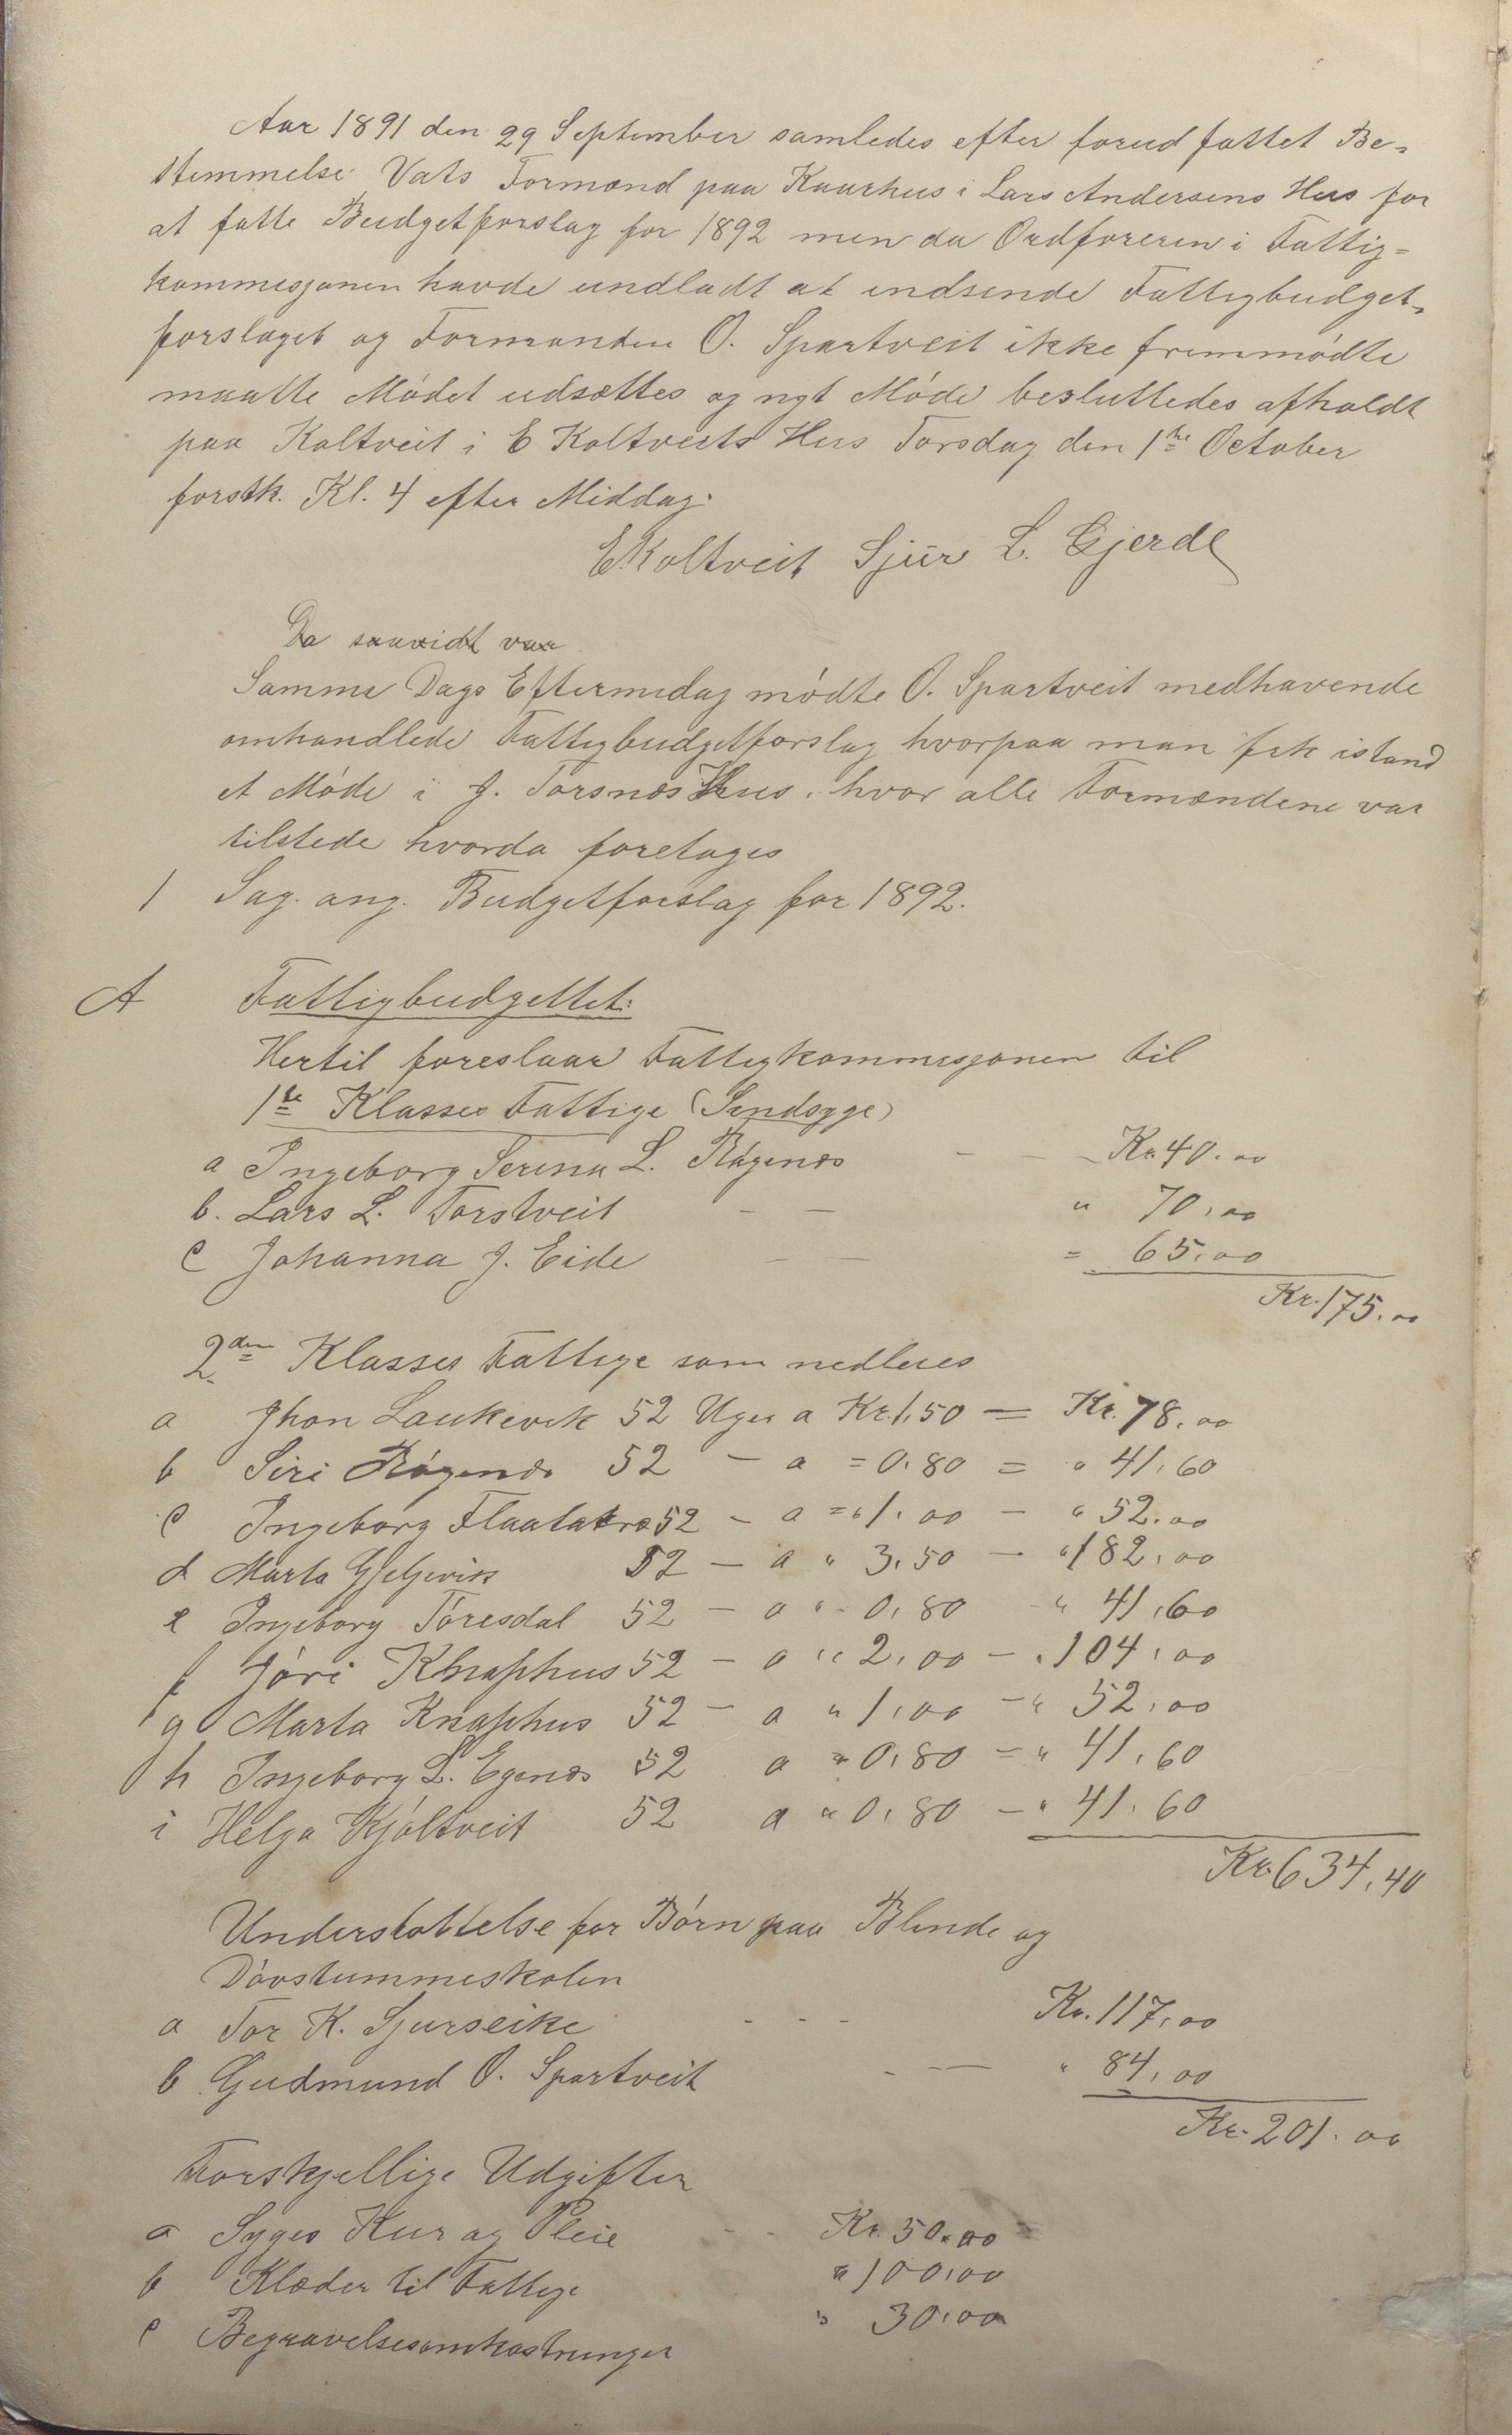 Aar 1891 den 29 September samledes efter forud fattet Be=
stemmelse Vats Formænd paa Kaarhus i Lars Andersens Hus for
at fatte Budgetforslag for 1892 men da Ordføreren i Fattig=
kommisjonen havde undladt at indsende Fattigbudget=
forslaget og Formanden O. Spartveit ikke fremmødte
maatte Mødet udsættes og nyt Møde besluttedes afholdt
paa Koltveit i E Koltveits Hus Torsdag den 1ste October
førstk. Kl. 4 efter Middag.
E. Koltveit Sjur L. Gjerde
Da saavidt var
Samme Dags Eftermidag mødte O. Spartveit medhavende
omhandlede Fattigbudgetforslag hvorpaa man fik istand
et Møde i J. Torsnæs Hus, hvor alle Formændene var
tilstede hvorda foretages
1 Sag. ang. Budgetforslag for 1892.
A Fattigbudgettet:
Hertil foreslaar Fattigkommisjonen til
1ste Klasses Fattige (Sindsyge)
a Ingeborg Serina L. Røgenæs - - - Kr. 40.00
b. Lars L. Torstveit - - " 70,00
c Johanna J. Eide - - = 65,00
Kr. 175.00
2den Klasses Fattige som nedlæes
a Jhon Laukevik 52 Uger a Kr. 1,50 = Kr. 78,00
b Siri Røgenæs 52 - a = 0,80 = " 41,60
c Ingeborg Flaatakræ 52 - a = " 1,00 - " 52.00
d Marta Gjeljevik 52 - a " 3,50 - " 182,00
e Ingeborg Tøresdal 52 - a " - 0,80 - " 41,60
f Jøri Knaphus 52 - a " 2,00 - " 104,00
g Marta Knaphus 52 - a " 1,00 - " 52,00
h Ingeborg L. Egenæs 52 a " 0,80 = " 41,60
i Helga Kjøltveit 52 a " 0,80 - " 41,60
Kr. 634,40
Understøttelse for Børn paa Blinde og
Døvstummeskolen
a Tor K. Sjurseike - - - Kr. 117,00
b Gudmund O. Spartveit - - " 84,00
Kr. 201.00
Forskjellige Udgifter
a Syges Kur og Pleie - - Kr. 50.00
b Klæder til Fattige " 100,00
c Begravelsesomkostninger " 30,00